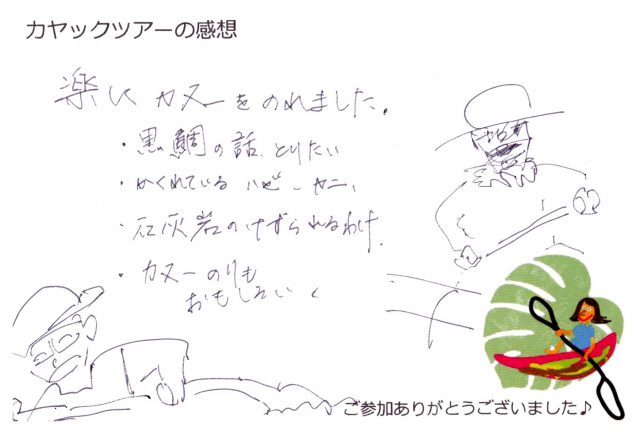 カヤックツアーの感想
楽しくカヌーをのれました。
・黒鯛の話、とりたい
・かくれているハゼ、カニ、
・石灰岩のけずられるわけ
・カヌーのりも
おもしろい
ご参加ありがとうございました♪